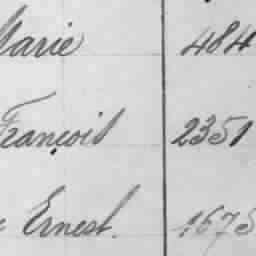 Marie 484
François 2351
Ernest. 1675